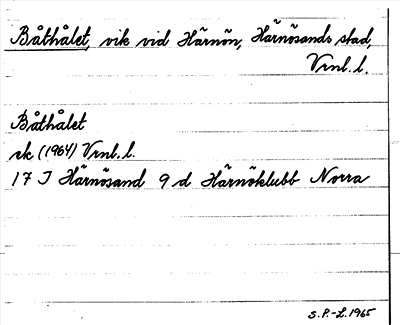 Båthålet, vik vid Härnön, Härnösands stad,
Vrnl. l.
Båthålet
ek (1964) Vrnl. l.
17 J Härnösand 9 d Härnöklubb Norra
S.P.-L. 1965